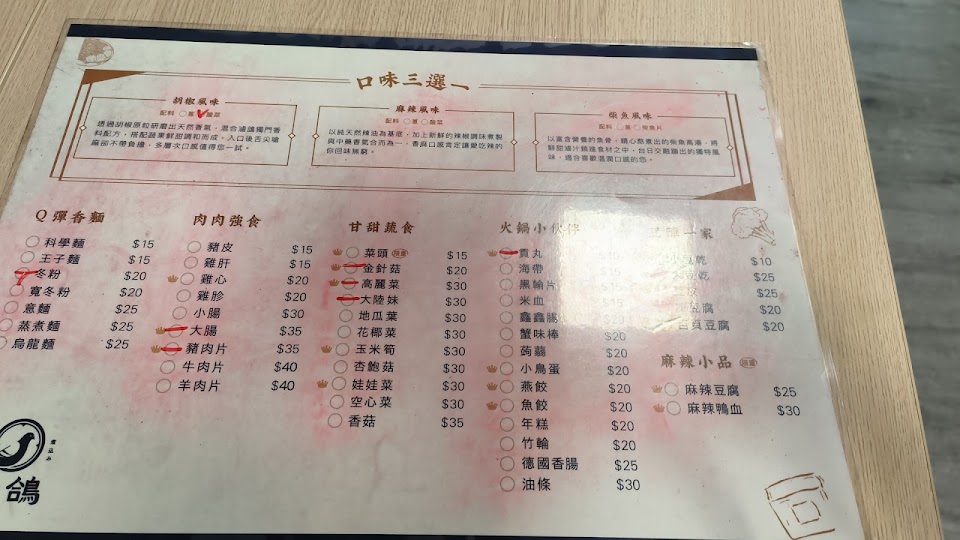 口味三選一
胡椒風味
配料 蔥 酸菜
透過胡椒原粒研磨出天然香氣，混合滷誰獨門香
料配方，搭配蔬果鮮甜調和而成，入口後舌尖嗆
麻卻不帶負擔，多層次口感值得您一試。
麻辣風味
配料 蔥 酸菜
以純天然辣油為基底，加上新鮮的辣椒調味煮製
與中藥香氣合而為一，香麻口感肯定讓愛吃辣的
你回味無窮。
柴魚風味
配料 蔥 柴魚片
Q彈香麵
科學麵 $15
王子麵 $15
冬粉 $20
寬冬粉 $20
意麵 $25
蒸煮麵 $25
烏龍麵 $25
肉肉強食
豬皮 $15
雞肝 $15
雞心 $20
雞胗 $20
小腸 $30
大腸 $35
豬肉片 $35
牛肉片 $40
羊肉片 $40
甘甜蔬食
菜頭 $15
金針菇 $20
高麗菜 $30
大陸妹 $30
地瓜葉 $30
花椰菜 $30
玉米筍 $30
杏鮑菇 $30
娃娃菜 $30
空心菜 $30
香菇 $35
火鍋小伙伴
貢丸 $10
海帶
黑輪片
米血
鑫鑫腸
蟹味棒 $20
蒟蒻 $20
小鳥蛋 $20
燕餃 $20
魚餃 $20
年糕 $20
竹輪 $20
德國香腸 $25
油條 $30
一家
$10
$25
$25
豆腐 $20
豆腐 $20
麻辣小品
麻辣豆腐 $25
麻辣鴨血 $30